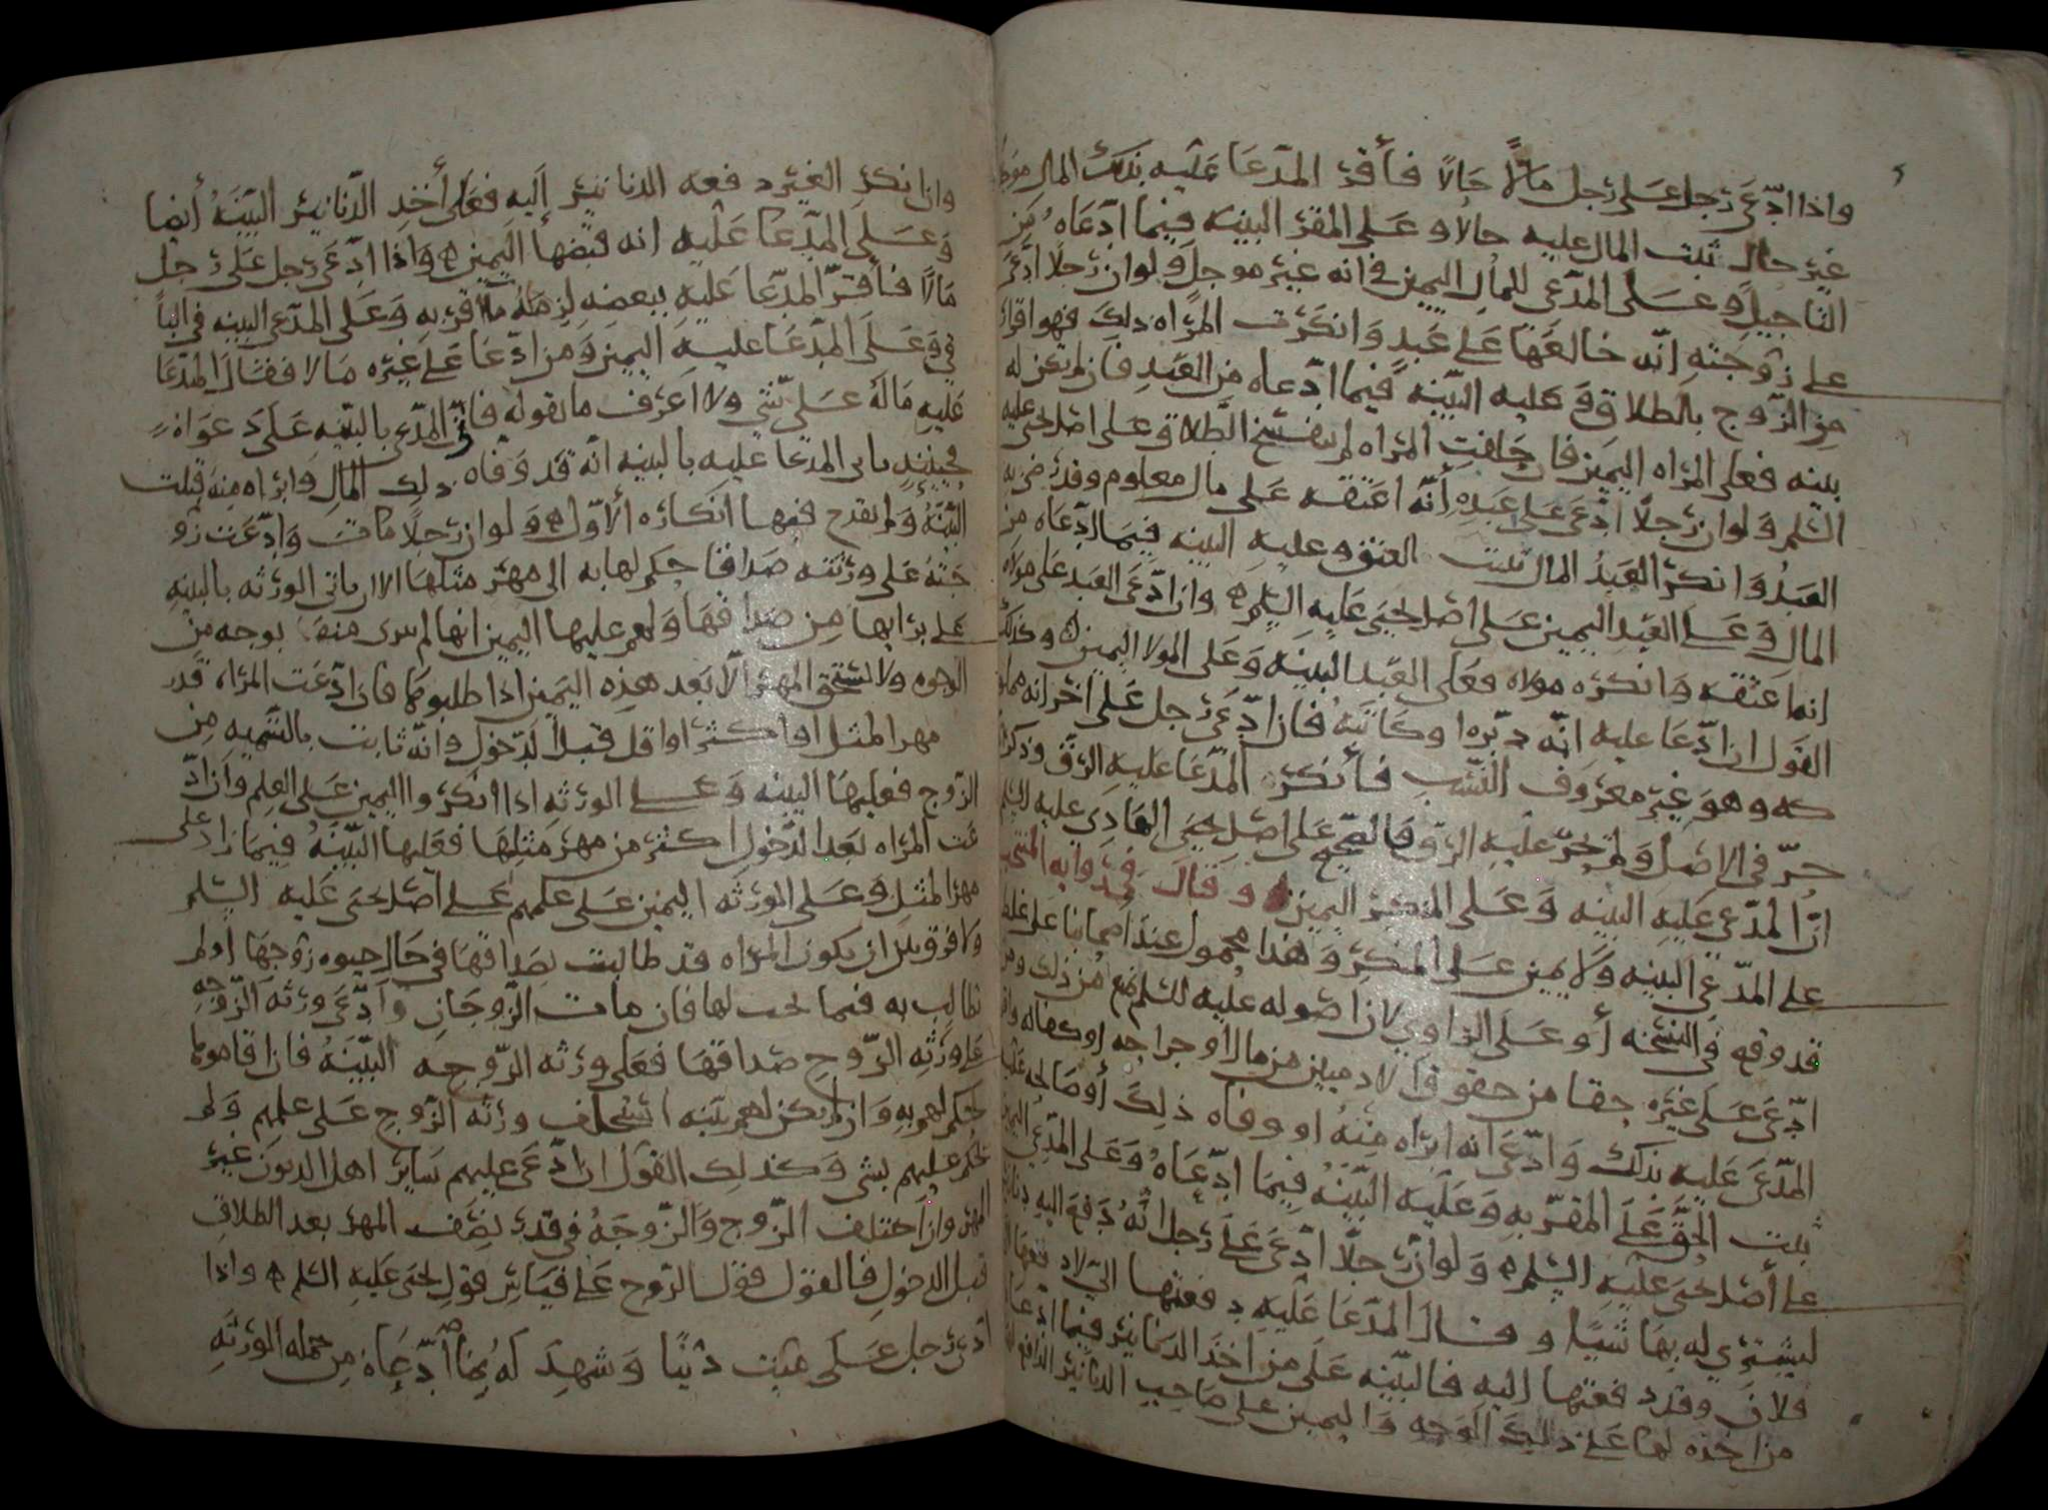 واذا ادّعى رجل على رجل مالًا حالًا فأقرّ المدّعا عليه بذلك المال
غير حال ثبت المال عليه حالا وعلى المقرّ البينه فيما ادّعاه من
التاجيل وعلى المدّعى للمال اليمين في انه غير موجل ولو ان رجلا ادّعى
على زوجته انّه خالعها على عبد وانكرت المرأه ذلك فهو اقرار
من الزّوج بالطلاق وعليه البيّنه فيما ادّعاه من العبد فان لم تكن له
بينه فعلى المراه اليمين فان حلفت المراه لم ينفسخ الطلاق على اصل يحيى عليه
السّلم ولو ان رجلًا ادّعى على عبده أنّه اعتقه على مال معلوم وقد رضي به
العبد وانكر العبد المال ثبت العتق وعليه البينه فيما ادّعاه من
المال وعلى العبد اليمين على اصل يحيى عليه السّلم وان ادّعى العبد على مولاه
انما عتقه وانكره مولاه فعلى العبد البينه وعلى المولا اليمين وكذلك
القول ان ادّعا عليه انّه دبّره او كاتبه فان ادّعى رجل على اخر انه
وهو غير معروف النّسب فأنكر المدّعا عليه الرّق وذكر
حرّ في الاصل ولم يجر عليه الرّق فالصحيح على اصل يحيى الهادي عليه السلم
انّ المدّعى عليه البينه وعلى المنكر اليمين وقال في روايه المنتخب
على المدّعي البينه ولا يمين على المنكر وهذا محمول عند اصحابنا على غلط
قد وقع في النسخه أو على الراوي لان اصوله عليه السلم تمنع من ذلك ومن
ادّعى على غيره حقا من حقوق الادميين من مال أو جراحه او كفاله
المدّعى عليه بذلك وادّعى انه ابراه منه او وفاه ذلك أو صالحه
ثبت الحقّ على المقرّ به وعليه البيّنه فيما ادّعاه وعلى المدّعي اليمين
على أصل يحيى عليه السّلم ولو ان رجلًا ادّعى على رجل انّه دفع اليه
ليشتري له بها شيئا وقال المدّعا عليه دفعتها اليّ لادفعها
فلان وقد دفعتها إليه فالبيّنه على من اخذ الدنانير فيما ادّعا
من اخذه لها على ذلك الوجه واليمين على صاحب الدنانير الدافع
وان انكر الغير دفعه الدنانير إليه فعلى أخذ الدّنانير البيّنه أيضا
وعلى المدّعا عليه انه قبضها اليمين واذا ادّعى رجل على رجل
مالًا فأقرّ المدّعا عليه ببعضه لزمه ما أقرّ به وعلى المدّعى البينه في البا
في وعلى المدّعا عليه اليمين ومن ادّعا على غيره مالا فقال المدّعا
عليه ماله على شي ولا اعرف ما يقوله فأتى المدّعى بالبيّنه على دعواه
فحينئذ ياتى المدّعا عليه بالبينه انّه قد وفّاه ذلك المال وابراه منه قبلت
البيّنه ولم يقدح فيها انكاره ألاوّل ولو ان رجلًا مات وادّعت زو
جته على ورثته صداقا حكم لها به الى مهر مثلها الا ان ياتى الورثه بالبينه
على برايها من صداقها ولهم عليها اليمين انها لم تبرى منه بوجه من
الوجوه ولا تستحق المهر الّا بعد هذه اليمين اذا طلبوها فان ادّعت المرأه قدر
مهر المثل او اكثر او اقل قبل الدّخول وانّه ثابت بالتّسميه من
الزّوج فعليها البينه وعلى الورثه اذا انكروا اليمين على العلم وان ادّ
عت المراه بعد الدّخول اكثر من مهر مثلها فعليها البيّنه فيما زاد على
مهر المثل وعلى الورثه اليمين على علمهم على أصل يحيى عليه السّلم
ولا فرق بين ان يكون المراه قد طالبت بصداقها في حال حيوه زوجها او لم
تطالب به فيما يجب لها فان مات الزّوجان وادّعى ورثه الزّوجه
على ورثه الزّوج صداقها فعلى ورثه الزّوجه البيّنه فان اقاموها
حكم لهم به وان لم يكن لهم بيّنه استحلف ورثه الزّوج على علمهم ولم
يحكم عليهم بشى وكذلك القول ان ادّعى عليهم ساير اهل الديون غير
المهر وان اختلف الزّوج والزّوجه في قدر نصف المهر بعد الطلاق
قبل الدخول فالقول قول الزّوج على قياس قول يحيى عليه السّلم واذا
ادّعى رجل على ميّت دينًا وشهد له بما ادّعاه من جمله الورثه